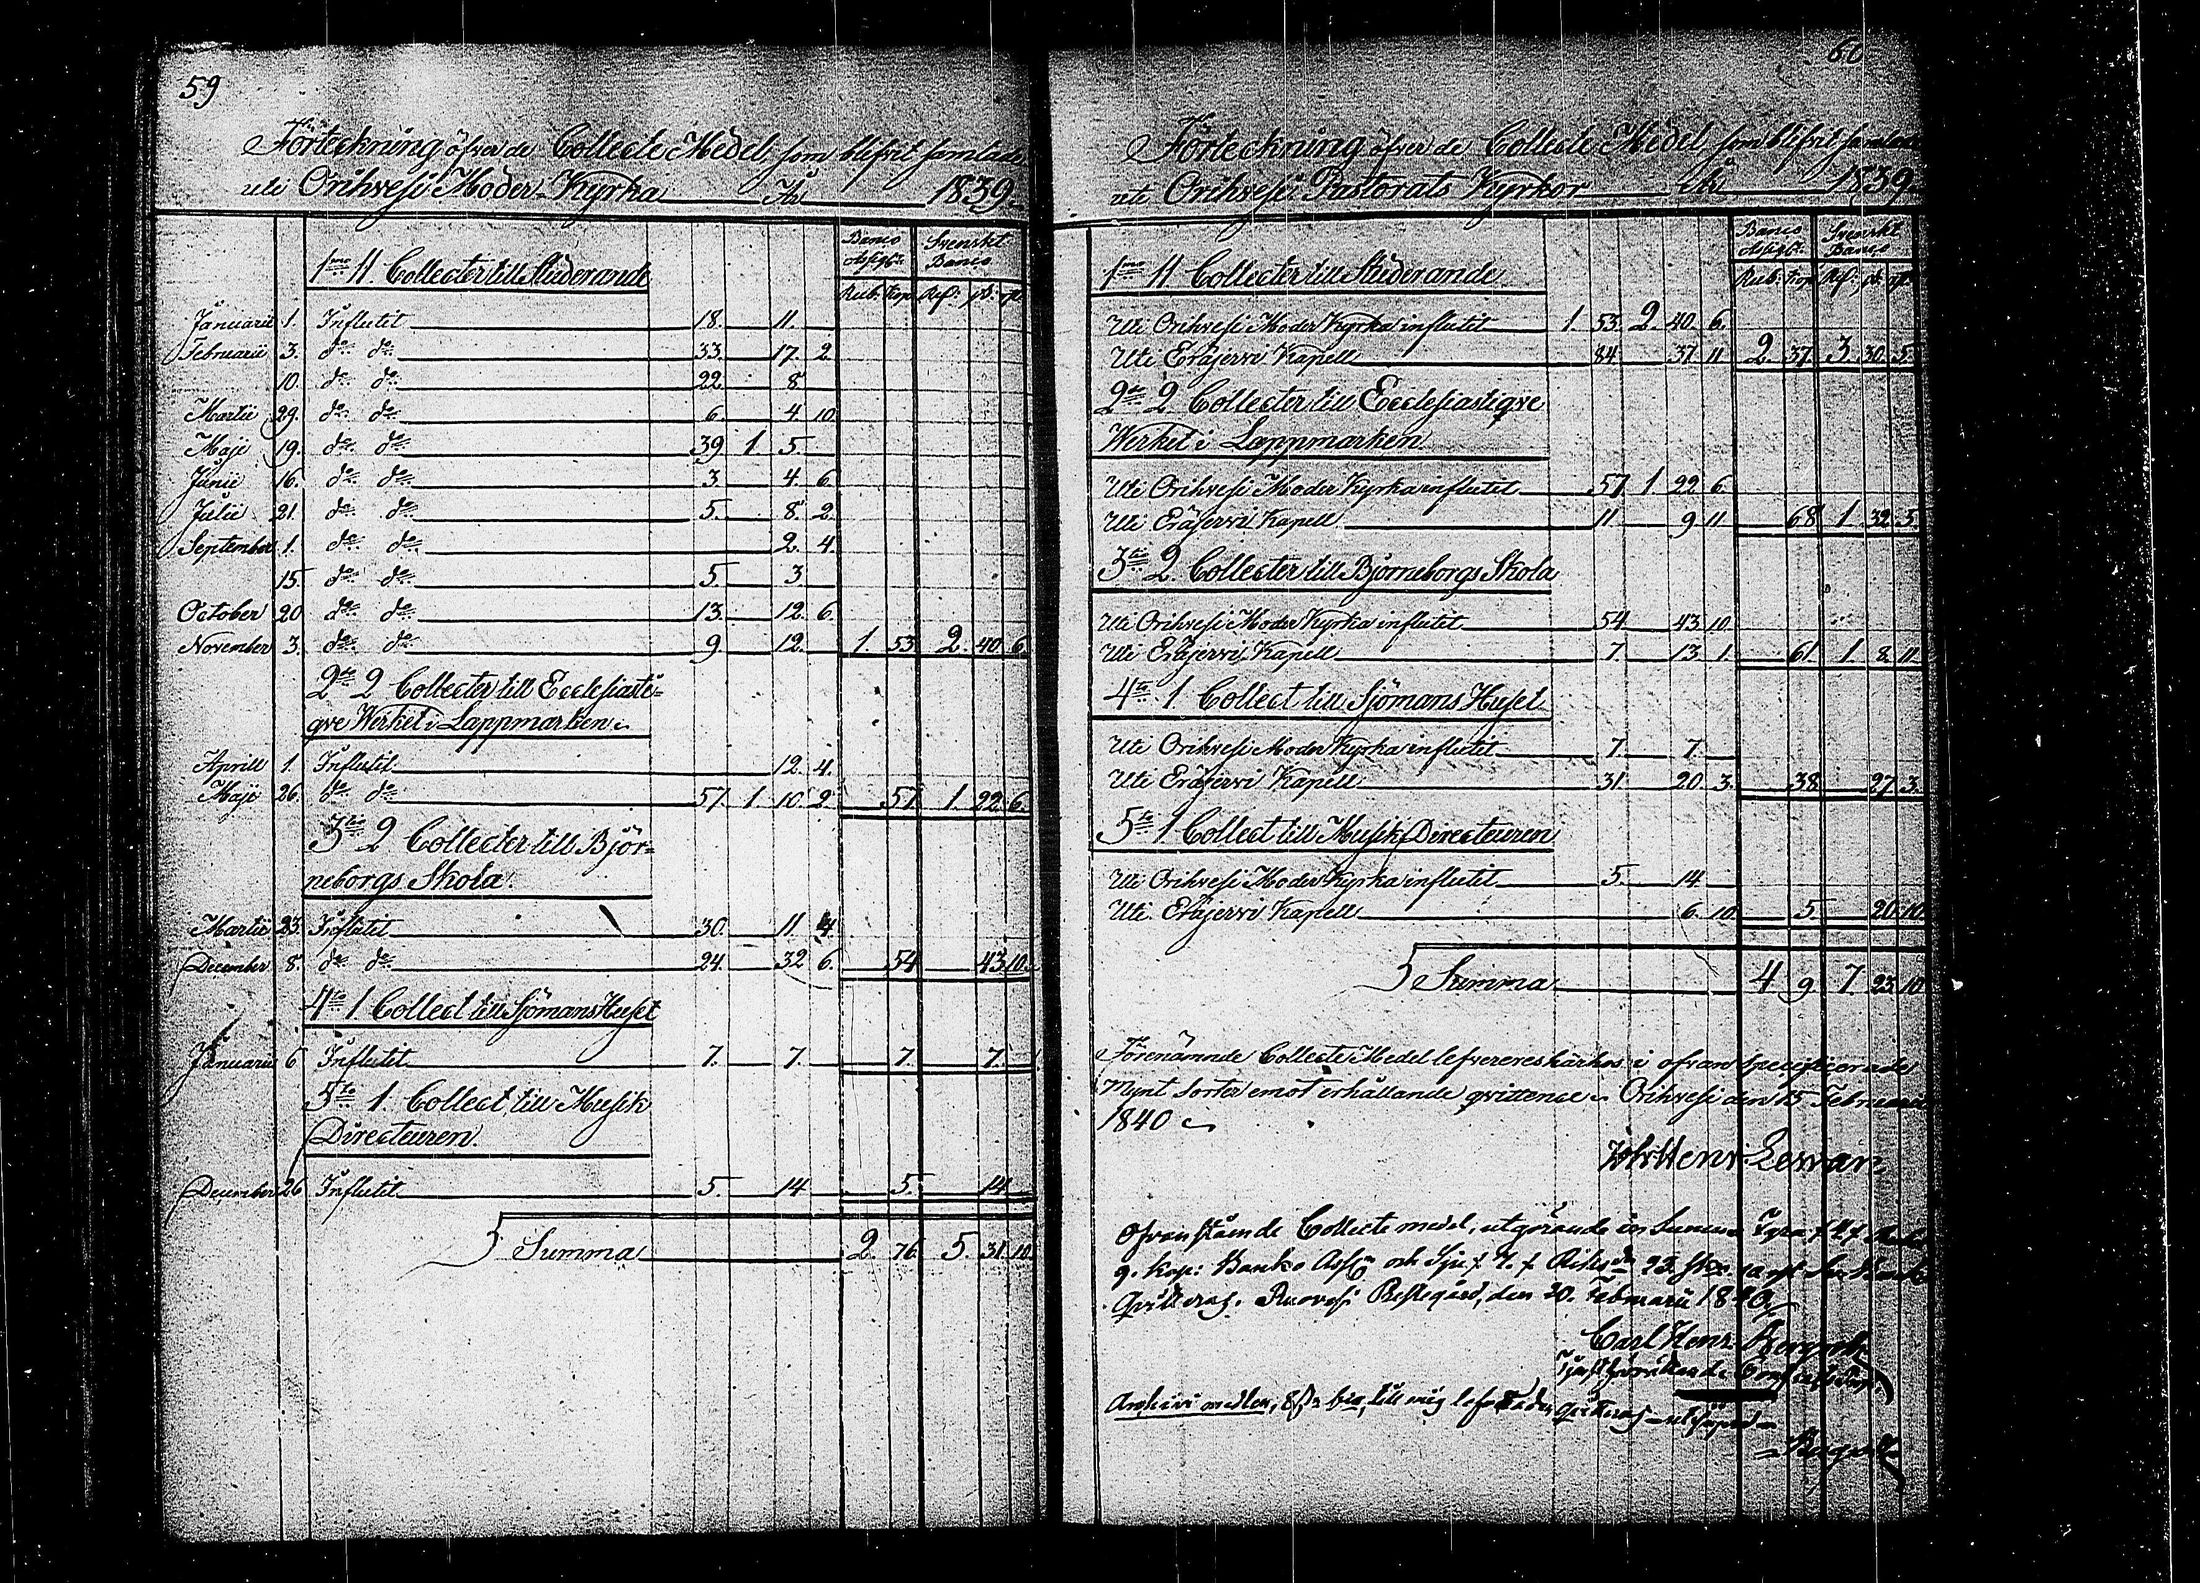 59
Förteckning öfver de Collecte Medel som blifvit samlade
uti Orihvesi Moder-Kyrka År 1839.
Banco Assign: Svenskt Banco
Rub: Kop: Rd: sk: rst
1mo 11. Collecter till Studerande
Januarii 1. Influtit 18. 11.
Februarii 3. do do 33. 17. 2
10. do do 22 8
Martii 29. do do 6. 4 10.
Maji 19. do do 39 1 5.
Junii 16. do do 3 4. 6.
Julii 21. do do 5. 8. 2.
September 1. do do 2. 4.
15. do do 5 3
October 20 do do 13. 12. 6.
November 3. do do 9 12. 1. 53 2. 40. 6
2do 2 Collecter till Ecclesiasti=
qve Werket i Lappmarken.
Aprill 1. Influtit 12. 4.
Maji 26. do do 57. 1 10 2 57 1. 22. 6.
3tio 2 Collecter till Björ=
neborgs Skola.
Martii 23. Influtit 30. 11 4
December 8. do do 24. 32 6. 54 43. 10.
4to 1. Collect till Sjömans Huset
Januarii 6 Influtit 7. 7. 7. 7.
5to 1. Collect till Musik
Directeuren.
December 26 Influtit 5. 14 5. 14
Summa 2. 76. 5. 31. 10.
60
Förteckning öfver de Collecte Medel som blifvit samlade
uti Orihvesi Pastorats Kyrkor År 1839.
Banco Assign: Svenskt Banco
Rub: Kop Rd: sk: rst
1mo 11 Collecter till Studerande
Uti Orihvesi Moder Kyrka influtit 1. 53. 2. 40. 6.
Uti Eräjervi Kapell 84 37 11 2. 37. 3. 30. 5.
2do 2 Collecter till Ecclesiastiqve
Werket i Lappmarken.
Uti Orihvesi Moder Kyrka influtit 57 1 22 6.
Uti Eräjervi Kapell 11 9 11. 68 1 32. 5
3tio 2 Collecter till Björneborgs Skola
Uti Orihvesi Moder Kyrka influtit 54 43 10.
Uti Eräjervi Kapell 7. 13 1. 61. 1. 8. 11.
4to 1 Collect till Sjömans Huset
Uti Orihvesi Moder Kyrka influtit 7. 7.
Uti Eräjervi Kapell 31. 20. 3. 38. 27. 3.
5to 1 Collect till Musik Directeuren
Uti Orihvesi Moder Kyrka influtit 5. 14.
Uti Eräjervi Kapell 6. 10. 5 20. 10.
Summa 4 9 7. 23. 10
Förenämnde Collecte Medel lefvereres härhos i ofvan specificerade
Mynt sorter emot erhållande qvittence. Orihvesi den 15 Februarii
1840
Joh Henr Lewan
Ofvanstående Collecte medel, utgörande en Summa Fyra /4/
9. kop: Banko Ass och Sju /7/ Riks 23. 10
Qvitteras. Ruovesi Prestegård, den 20. Februarii 1840.
Carl Henr. Bergroth
Tjenstförrättande
Archivi medlen, till mig qvitteras
Bergroth